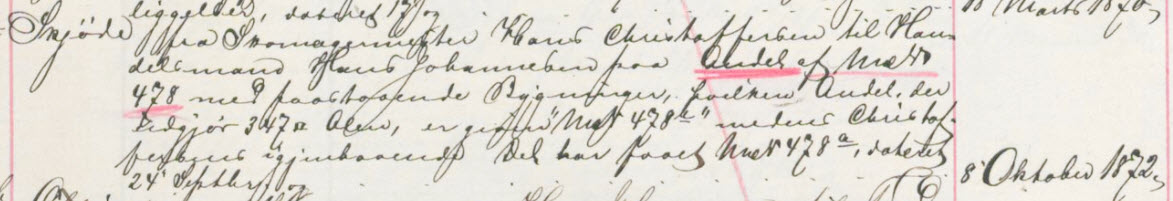 liggelser, dateret 17 og 18 Marts 1870,
Skjøde fra Skomagermester Hans Christoffersen til Han-
delsmand Hans Johannesen paa Andel af Mat №
478 med paastaaende Bygninger, hvilken Andel, der
udgjør 347 □ Alen, er given "Mat № 478 b" medens Christof-
fersens igjenværende Del har faaet Mat № 478 a, dateret
24 Septbr og 8 Oktober 1872,